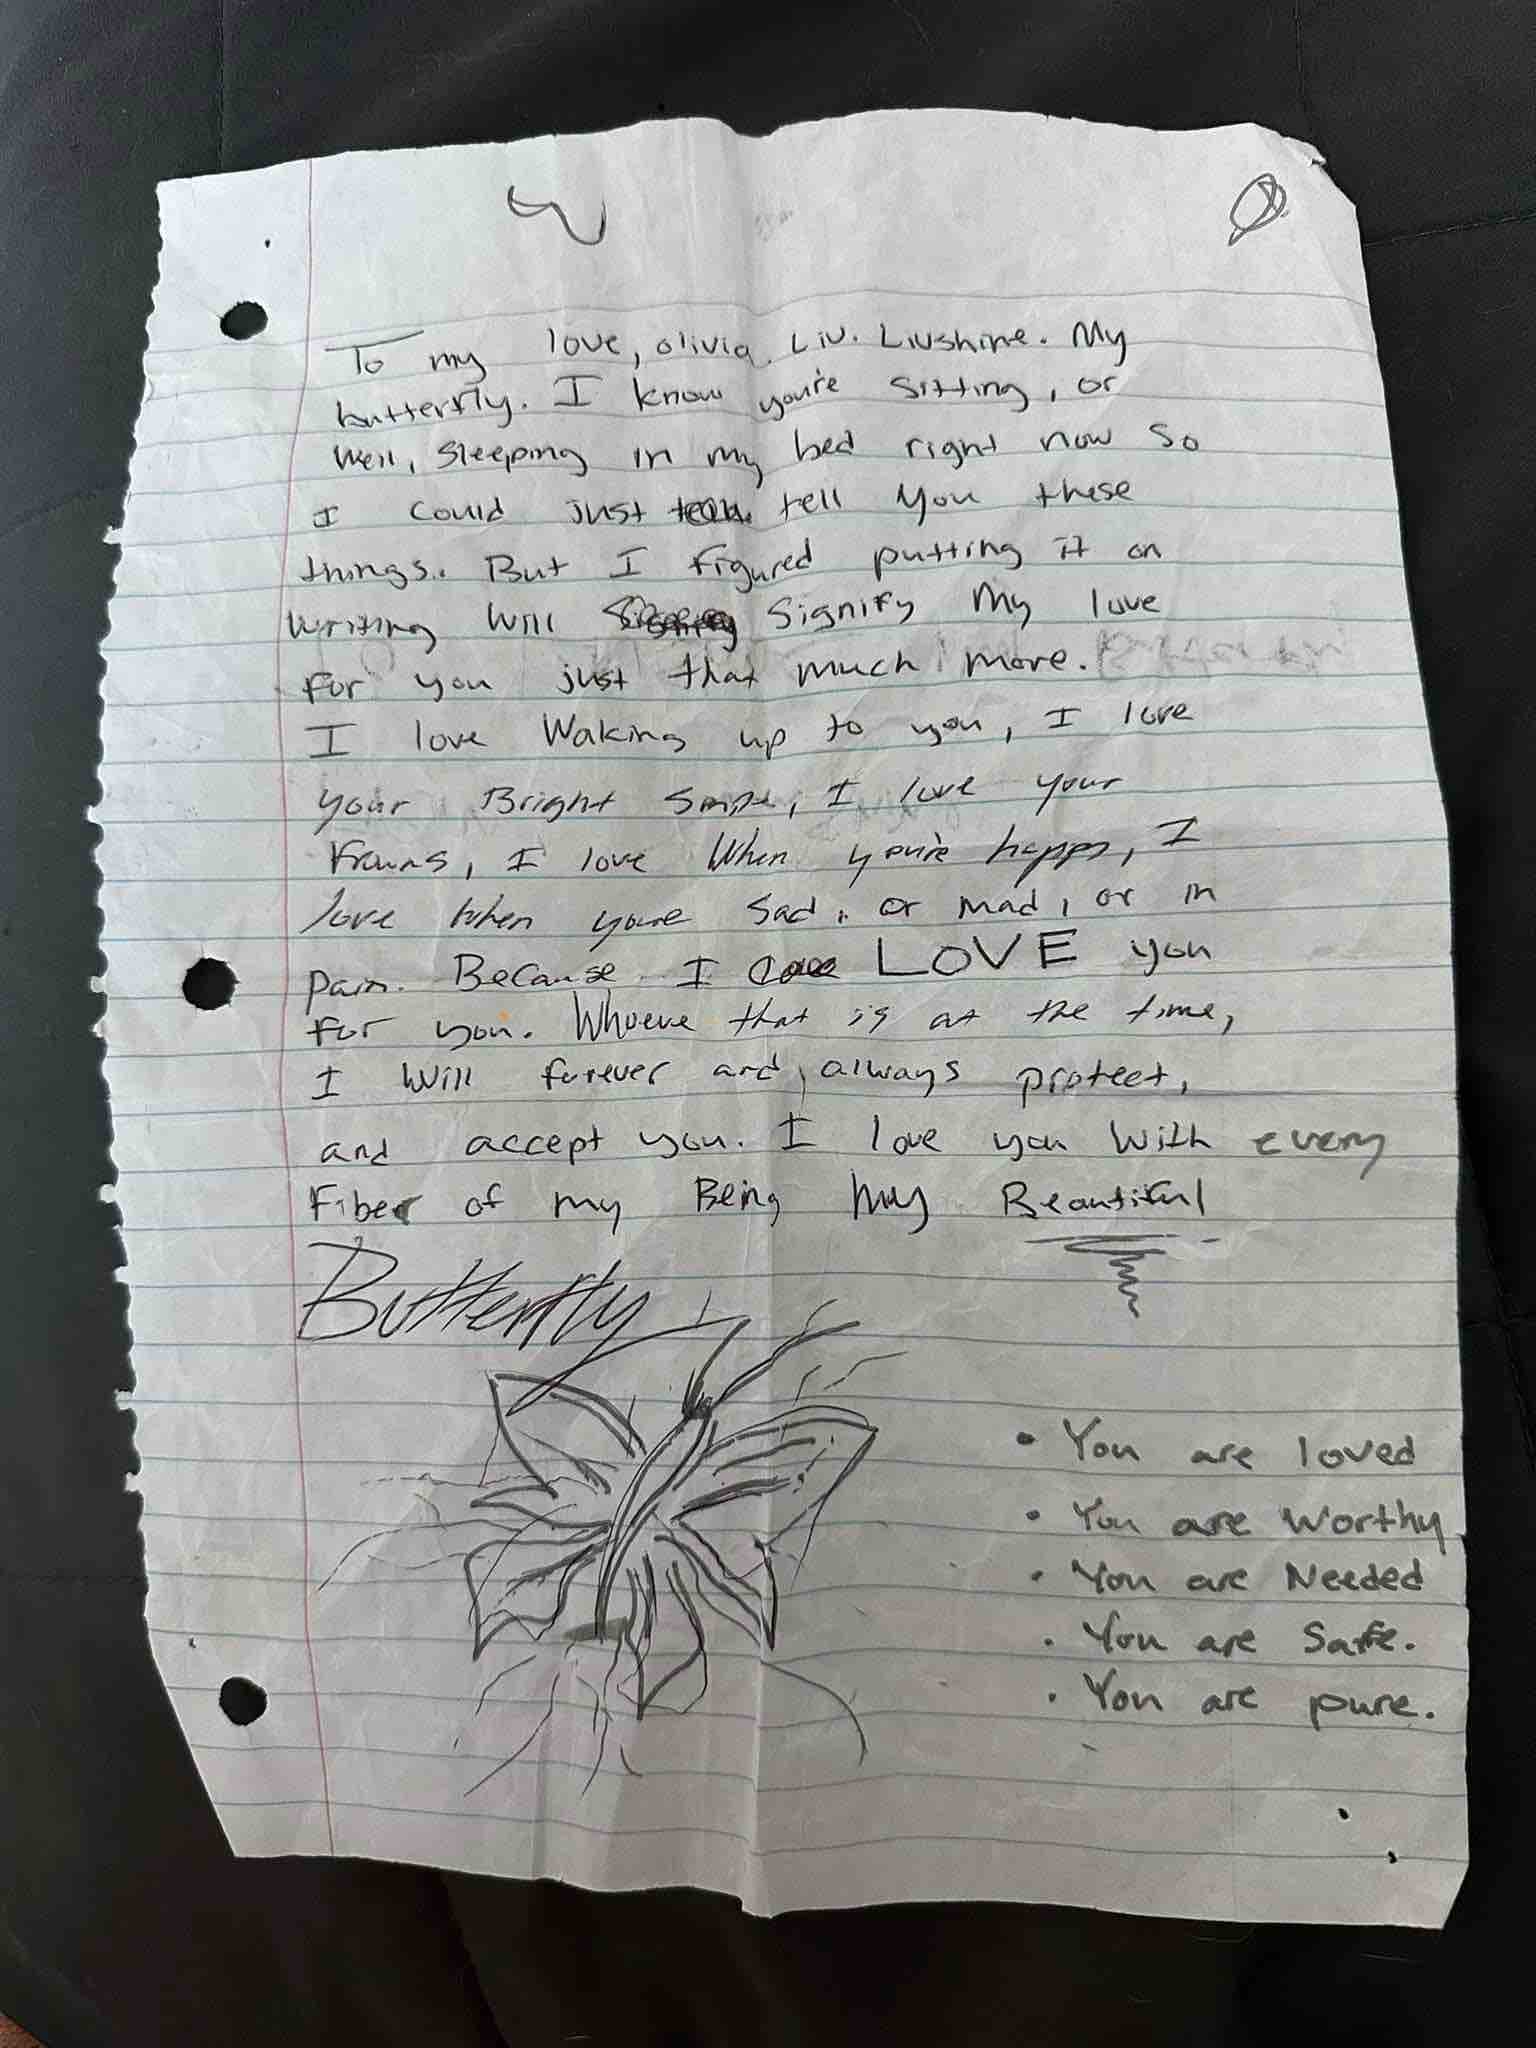 To my love, olivia. Liv. Livshine. My
butterfly. I know you're sitting, or
well, sleeping in my bed right now so
I could just tell you these
things. But I figured putting it on
writing will signify my love
for you just that much more.
I love waking up to you, I love
your Bright smile, I love your
frowns, I love when you're happy, I
love when youre sad, or mad, or in
pain. Because I LOVE you
for you. Whoever that is at the time,
I will forever and always protect,
and accept you. I love you with every
Fiber of my Being my Beautiful
Butterfly
• You are loved
• You are worthy
• You are Needed
• You are safe.
• You are pure.